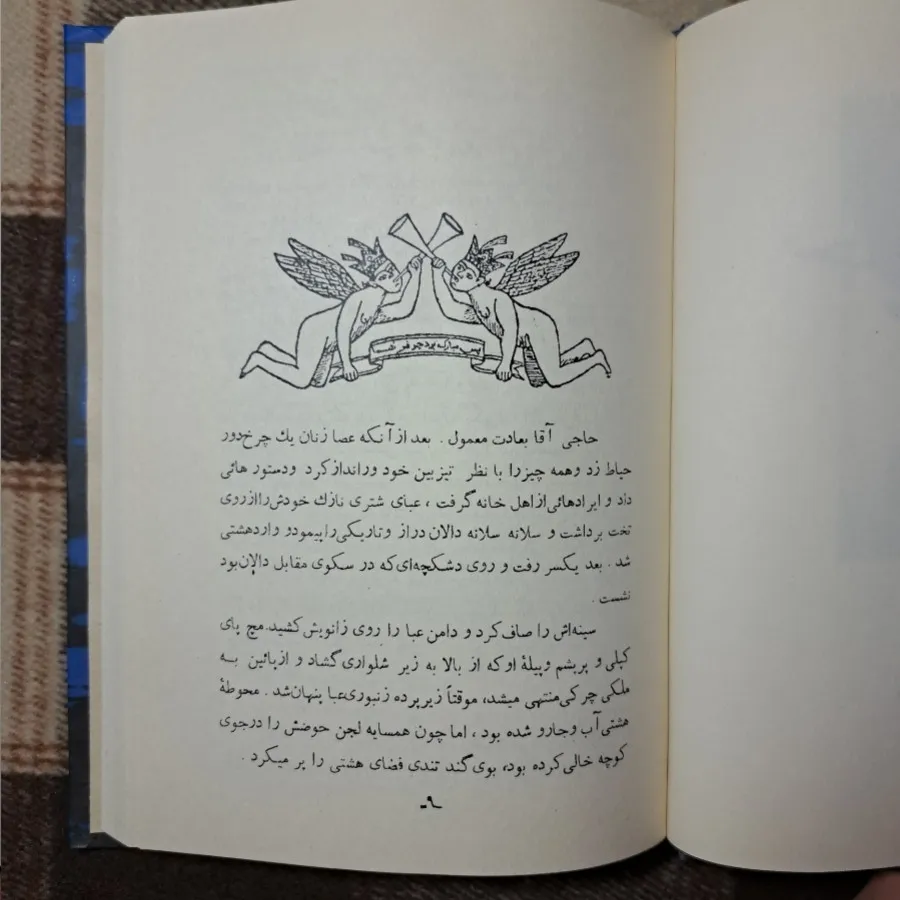 پس مبارک بود چو فر هما
حاجی آقا بعادت معمول . بعد از آنکه عصا زنان یك چرخ دور
حیاط زد و همه چیز را با نظر تیز بین خود ورانداز کرد و دستور هائی
داد و ایرادهائی از اهل خانه گرفت ، عبای شتری نازك خودش را از روی
تخت برداشت و سلانه سلانه دالان دراز و تاریکی را پیمود و وارد هشتی
شد . بعد یکسر رفت و روی دشکچه‌ای که در سکوی مقابل دالان بود
نشست .
سینه‌اش را صاف کرد و دامن عبا را روی زانویش کشید. مچ پای
کپلی و پرپشم و پیلهٔ او که از بالا به زیر شلواری گشاد و از پائین به
ملکی چرکی منتهی میشد، موقتاً زیر پرده زنبوری عبا پنهان شد . محوطهٔ
هشتی آب و جارو شده بود ، اما چون همسایه لجن حوضش را در جوی
کوچه خالی کرده بود، بوی گند تندی فضای هشتی را پر میکرد .
ـ۹ـ